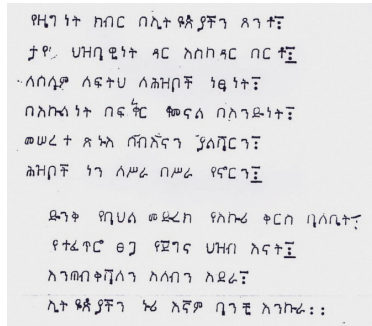 የዜግነት ክብር በኢትዮጵያችን ጸንቶ፤
ታየ ህዝባዊነት ዳር እስከዳር በርቶ፤
ለሰላም ለፍትህ ለሕዝቦች ነፃነት፤
በእኩልነት በፍቅር ቆመናል በአንድነት፤
መሠረተ ጽኑስ ሰብእናን ያልሻርን፤
ሕዝቦች ነን ለሥራ በሥራ የኖርን፤
ድንቅ የባህል መድረክ የአኩሪ ቅርስ ባለቤት፤
የተፈጥሮ ፀጋ የጀግና ህዝብ እናት፤
እንጠብቅሻለን አለብን አደራ፤
ኢትዮጵያችን ኑሪ እኛም ባንቺ እንኩራ፡፡